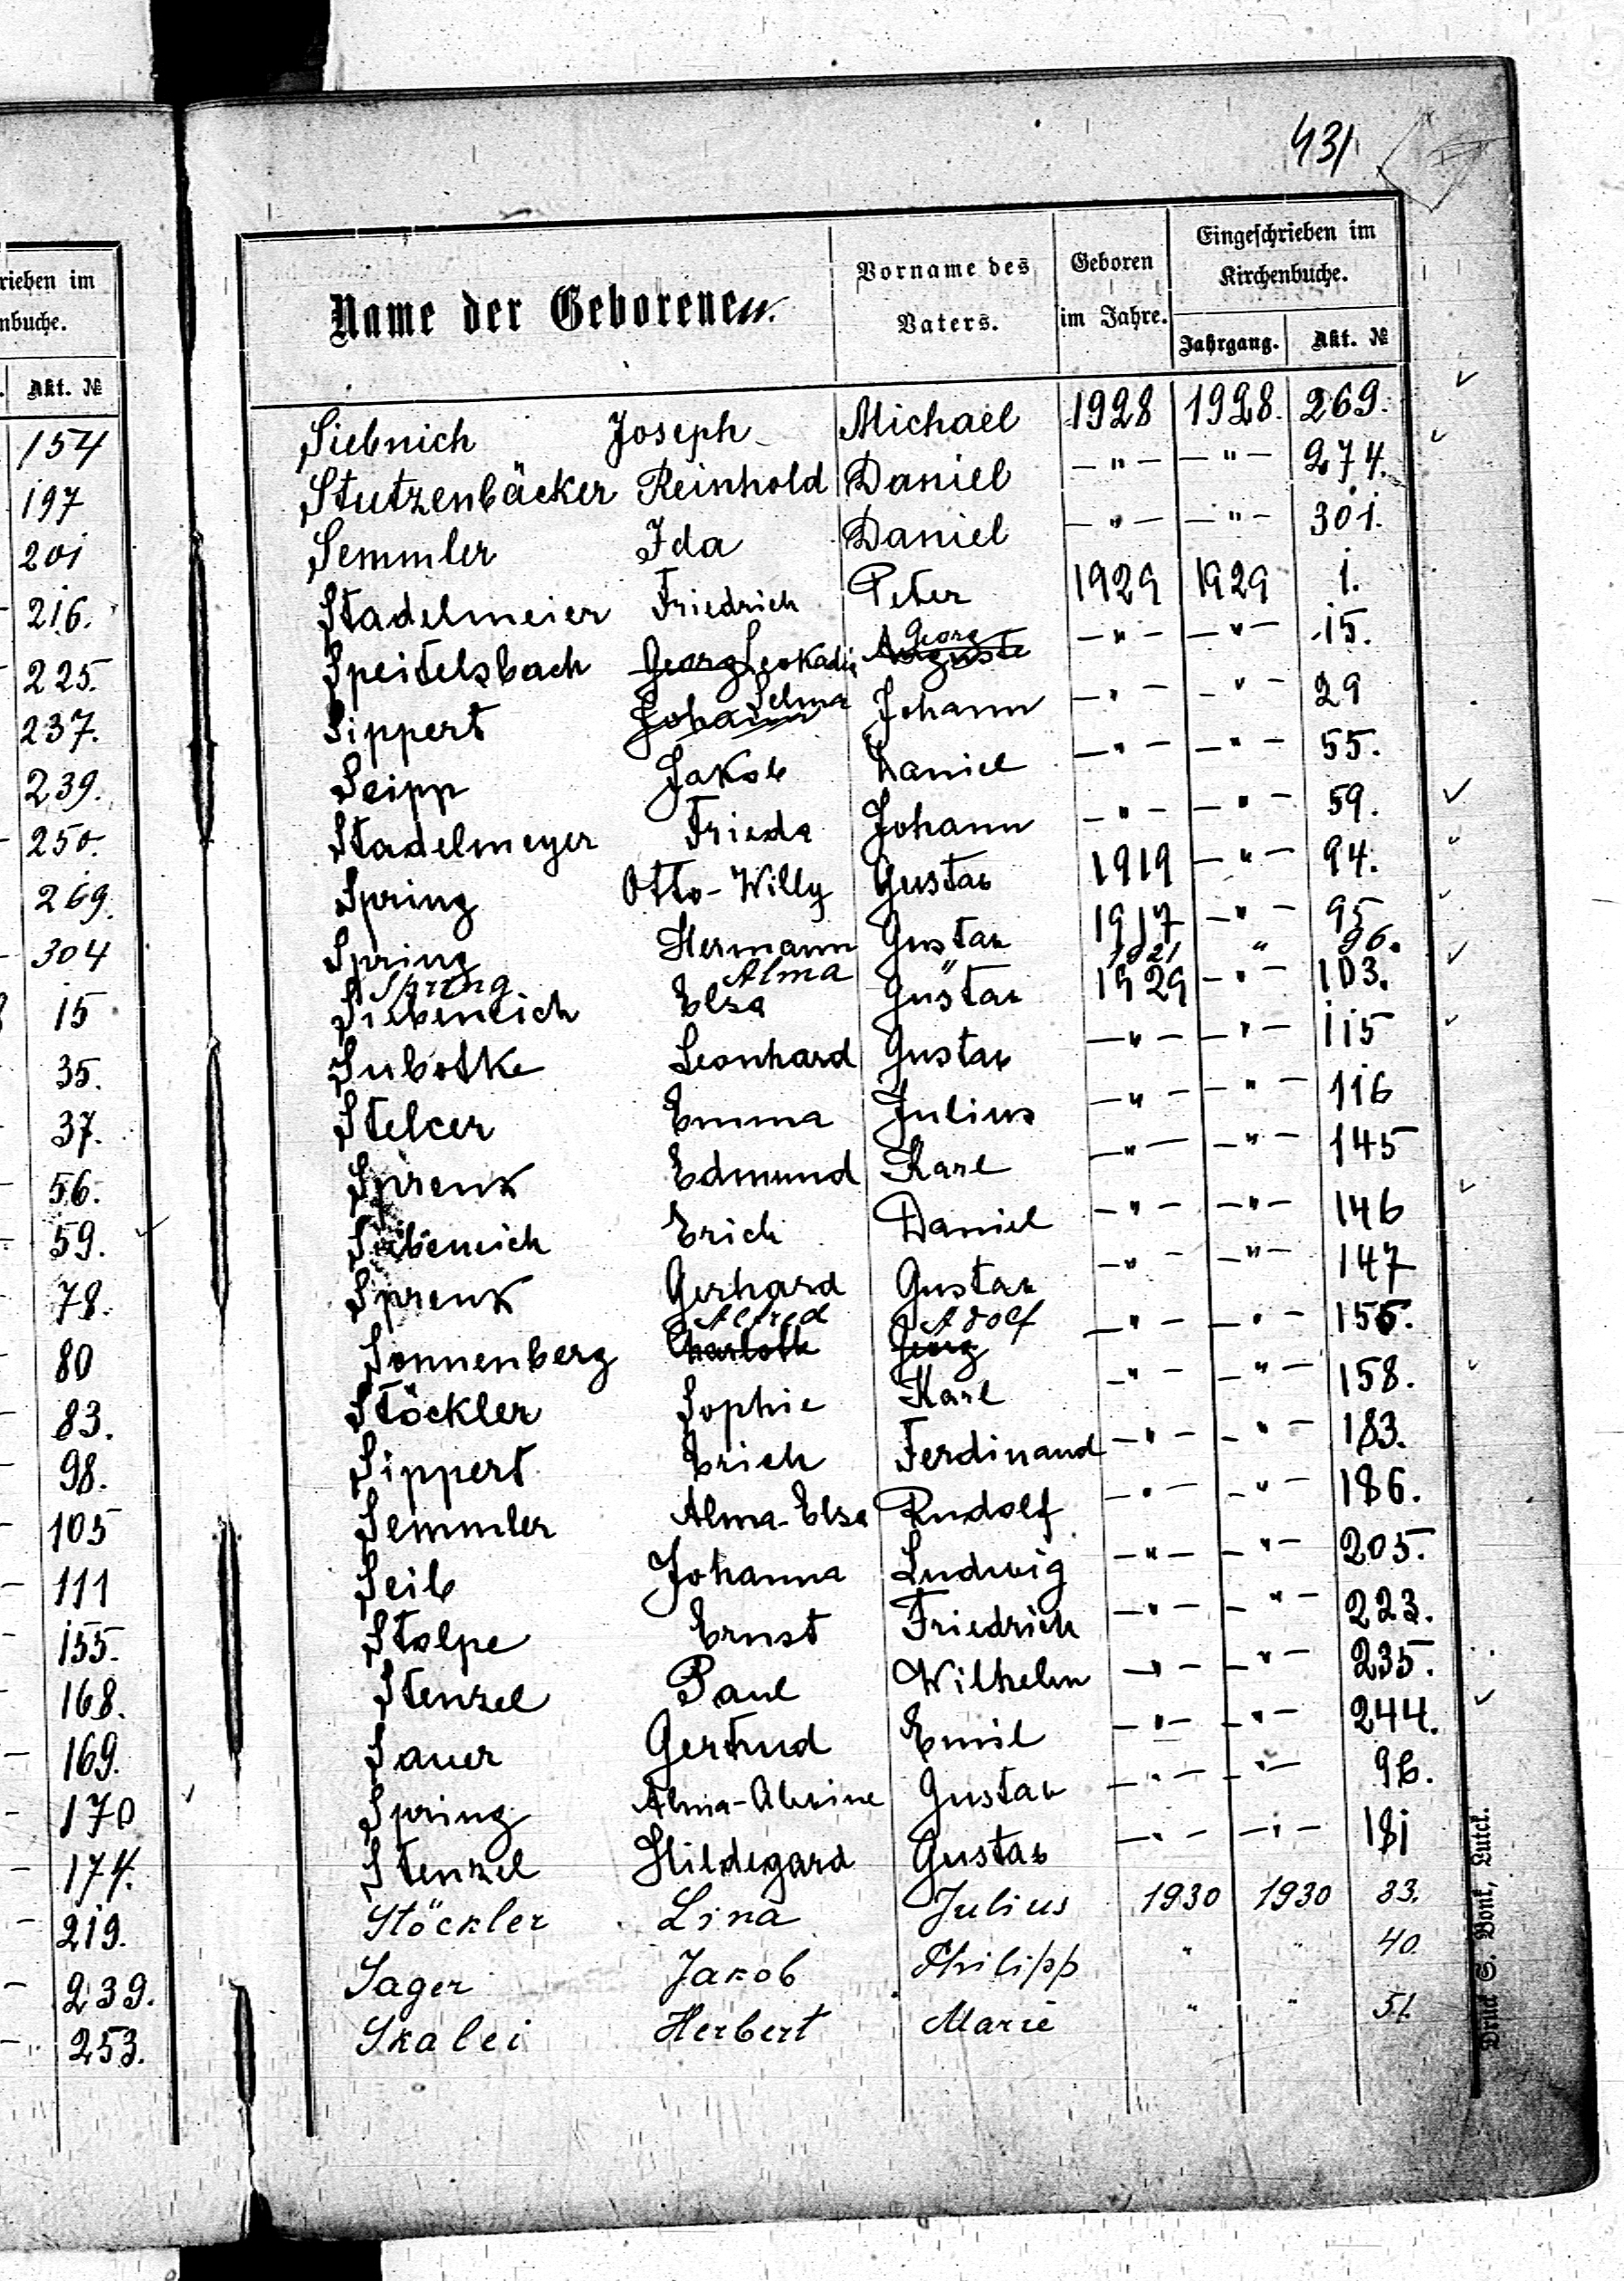 431
rieben im
nbuche.
Akt. №
154
197
201
216.
225.
237.
239.
250.
269.
304
15
35.
37.
56.
59.
78.
80
83.
98.
105
111
155.
168.
169.
170
174.
219.
239.
253.
Name der Geborenen. Vorname des Vaters. Geboren im Jahre. Eingeschrieben im Kirchenbuche.
Jahrgang. Akt. №
Siebnich Joseph Michael 1928 1928. 269.
Stutzenbäcker Reinhold Daniel —"— —"— 274.
Semmler Ida Daniel —"— —"— 301.
Stadelmeier Friedrich Peter 1929 1929 1.
Georg
Speitelsbach Georg Leokadie Auguste —"— —"— 15.
Selma
Sippert Johann Johann —"— —"— 29
Seipp Jakob Daniel —"— —"— 55.
Stadelmeyer Frieda Johann —"— —"— 59.
Spring Otto-Willy Gustav 1919 —"— 94.
Spring Hermann Gustav 1917 —"— 95
Spring Alma " 1921 " 96.
Siebeneich Elsa Gustav 1929 —"— 103.
Subotke Leonhard Gustav —"— —"— 115
Stelcer Emma Julius —"— —"— 116
Sprenk Edmund Karl —"— —"— 145
Siebeneich Erich Daniel —"— —"— 146
Sprenk Gerhard Gustav —"— —"— 147
Alfred Adolf
Sonnenberg Charlotte Georg —"— —"— 156.
Stöckler Sophie Karl —"— —"— 158.
Sippert Erich Ferdinand —"— —"— 183.
Semmler Alma-Elsa Rudolf —"— —"— 186.
Seib Johanna Ludwig —"— —"— 205.
Stolpe Ernst Friedrich —"— —"— 223.
Stenzel Paul Wilhelm —"— —"— 235.
Sauer Gertrud Emil —"— —"— 244.
Spring Gustav —"— —"— 96.
Stenzel Hildegard Gustav —"— —"— 181
Stöckler Lina Julius 1930 1930 33.
Sager Jakob Philipp " " 40.
Skalei Herbert Marie " " 51.
Druck S. Bonk, Luck.